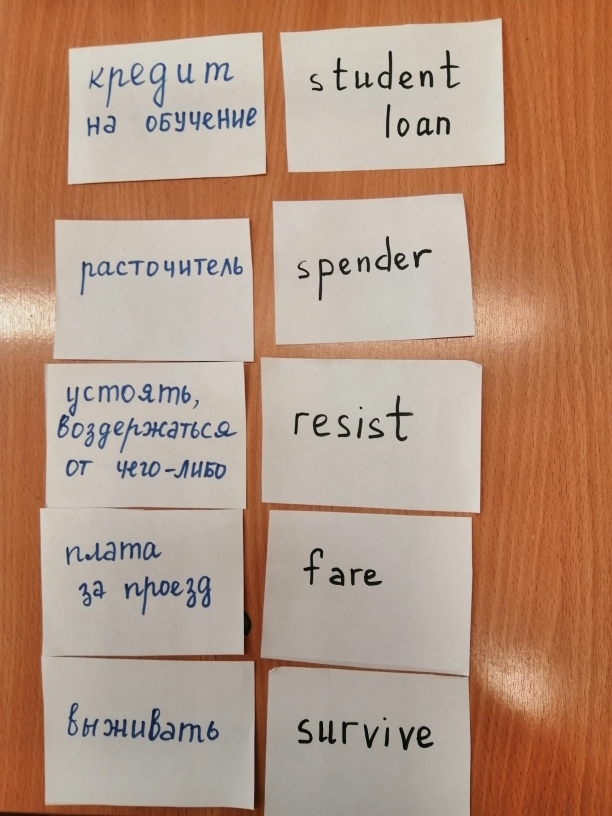 кредит
на обучение
student
loan
расточитель
spender
устоять,
воздержаться
от чего-либо
resist
плата
за проезд
fare
выживать
survive